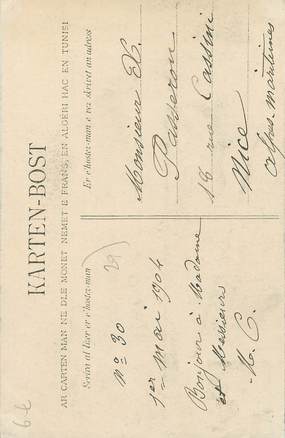 KARTEN-BOST
AR CARTEN MAN NE DLE MONET NEMET E FRANS, EN ALGERI HAG EN TUNISI
Scrivan al lizer er c'hostez-man
Er c'hostez-man e rez skrivan an adress
N° 30
1er mai 1904
Bonjour à Madame
et Messieurs
Monsieur
Passeron
18 rue Cassini
Nice
Alpes-Maritimes
6 €